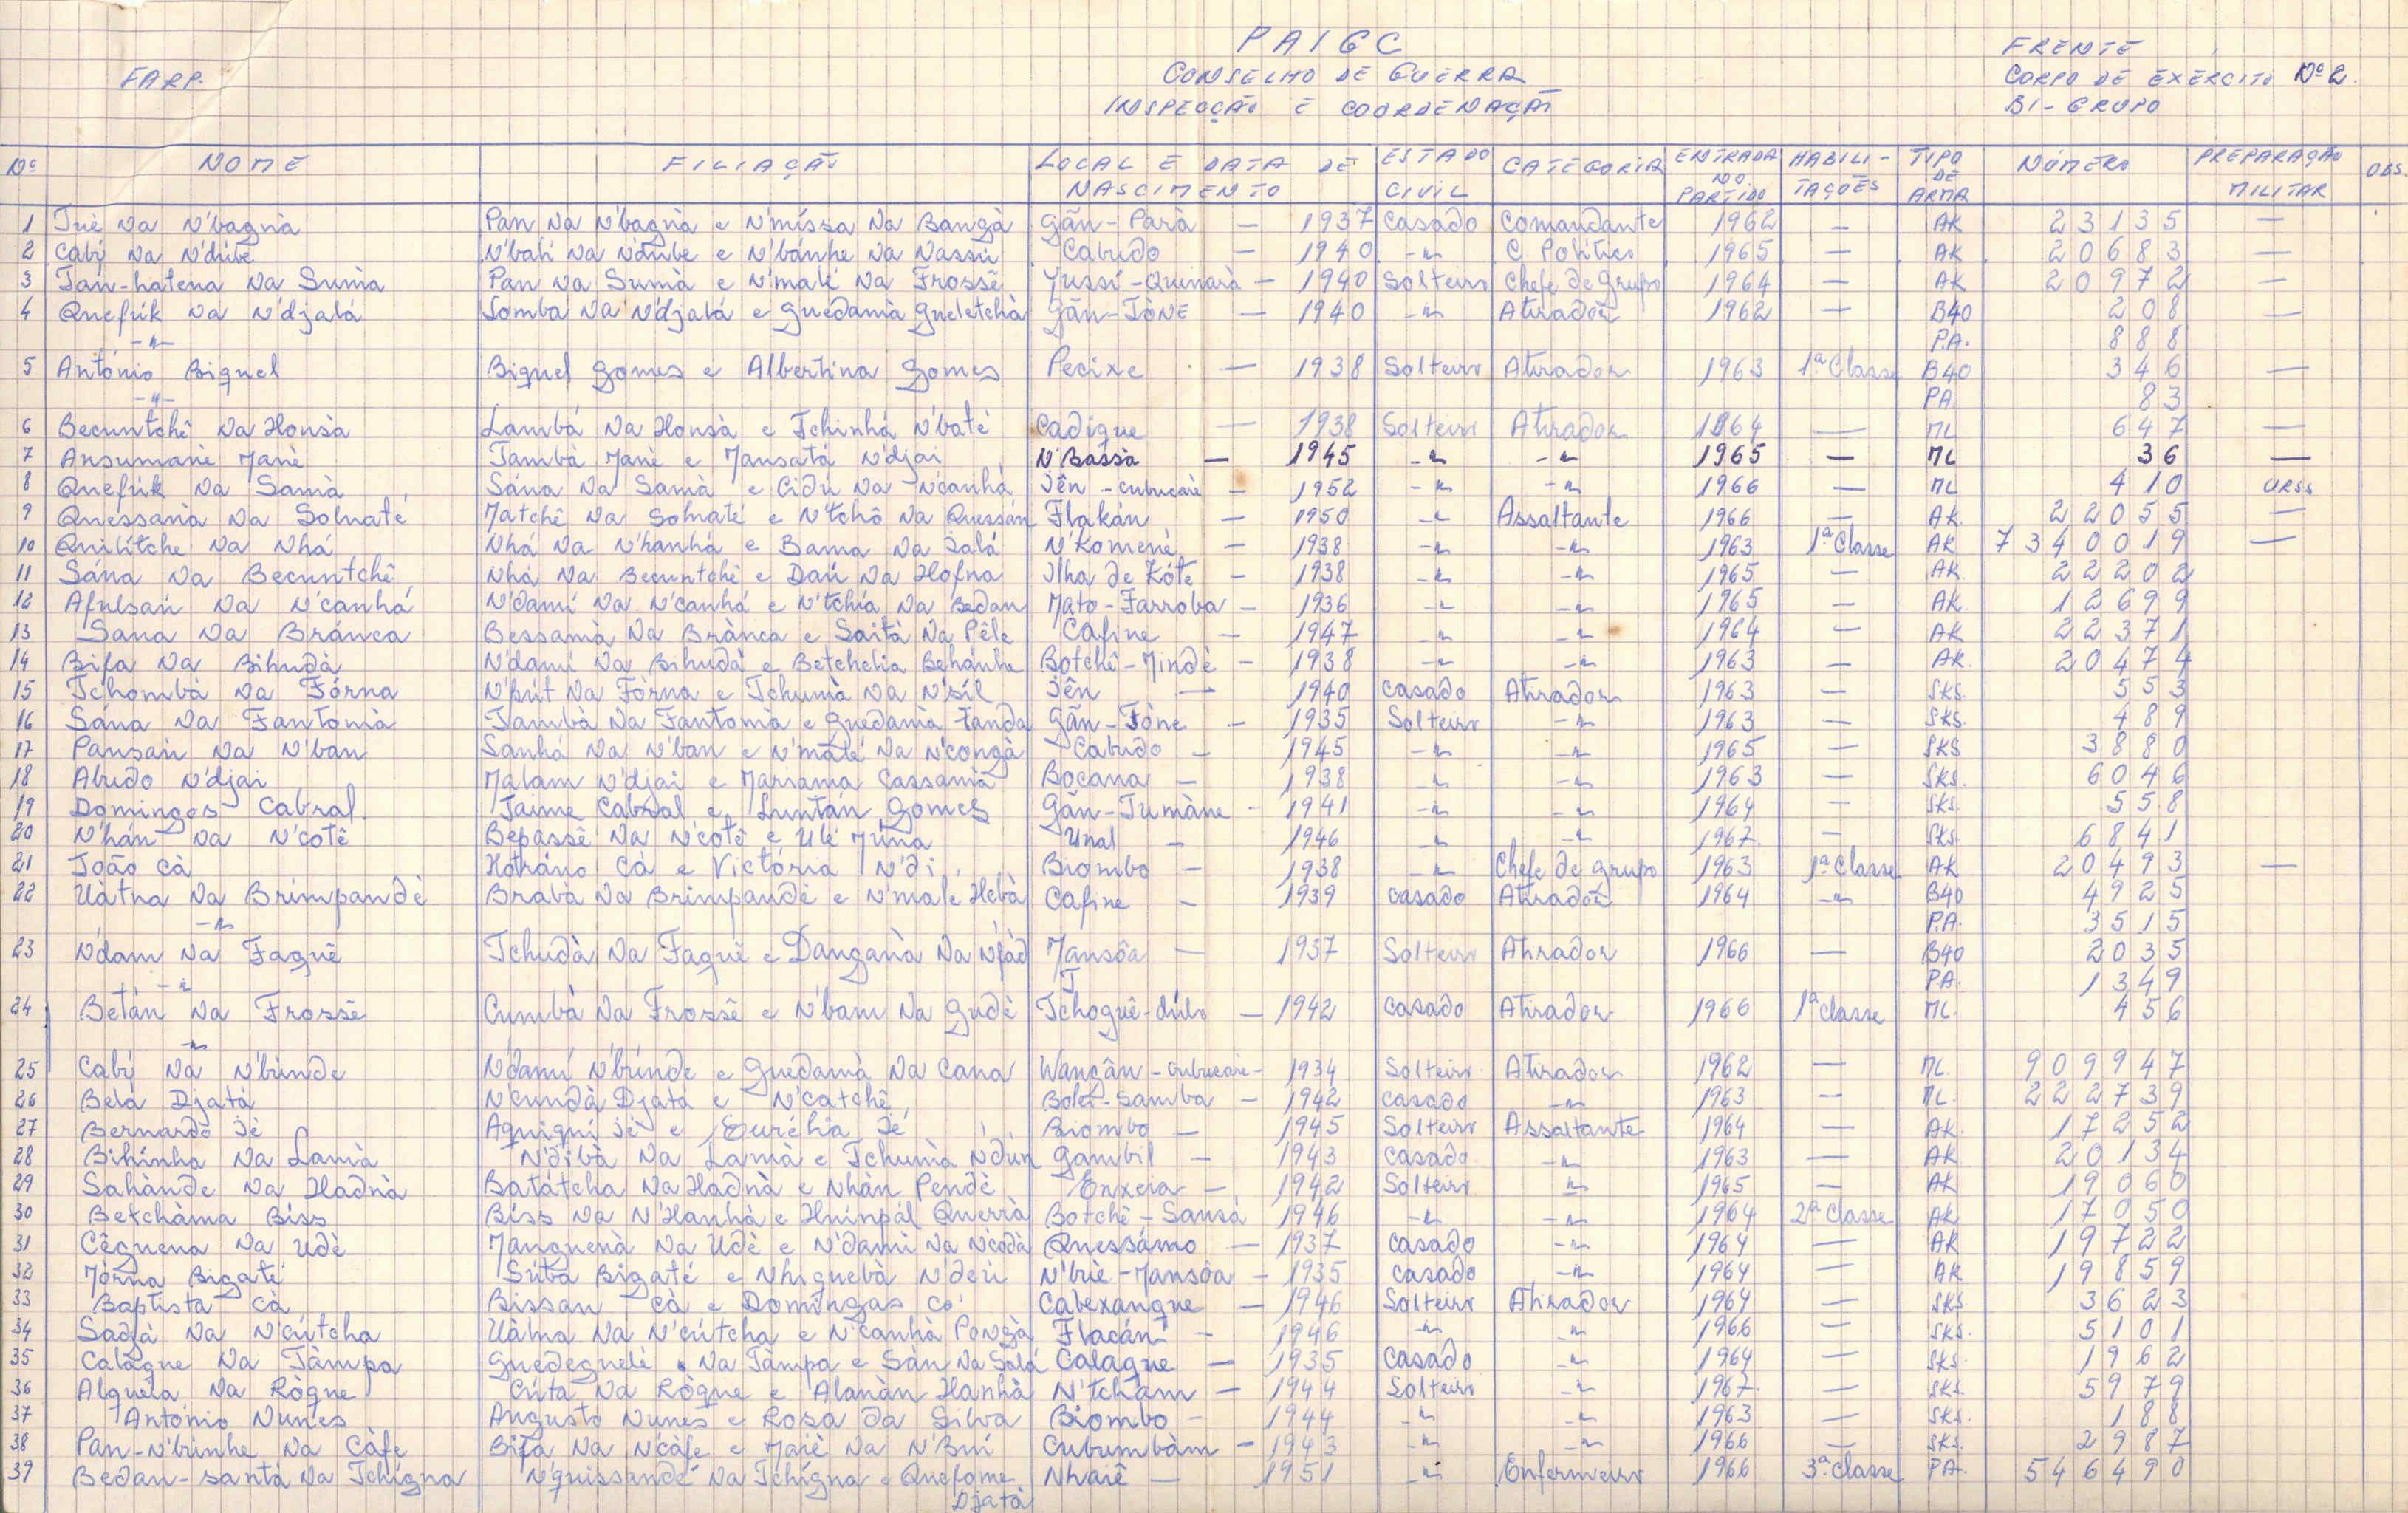 PAIGC
FARP.
CONSELHO DE GUERRA
INSPECÇÃO E COORDENAÇÃO
FRENTE
CORPO DE EXÉRCITO Nº 2.
BI-GRUPO
Nº NOME FILIAÇÃO LOCAL E DATA DE NASCIMENTO ESTADO CIVIL CATEGORIA ENTRADA NO PARTIDO HABILITAÇÕES TIPO DE ARMA NÚMERO PREPARAÇÃO MILITAR OBS.
1 Tué Na N'bagnà Pan Na N'bagnà e N'missa Na Bangà Gãn-Parà — 1937 Casado Comandante 1962 — AK 23135 —
2 Cabý Na N'dúbe N'bati Na N'dúbe e N'bánhe Na Nassú Cabudo — 1940 -"- C. Politico 1965 — AK 20683 —
3 Tan-hatena Na Sumà Pan Na Sumà e N'malé Na Frossê Jussí-Quinarà — 1940 Solteiro Chefe de Grupo 1964 — AK 20972 —
4 Quefúk Na N'djalá Somba Na N'djalá e Guedanià Gueletchà Gãn-TòNE — 1940 -"- Atirador 1962 — B40 208 —
-"- P.A. 888
5 António Biquel Biquel Gomes e Albertina Gomes Pecixe — 1938 Solteiro Atirador 1963 1ª Classe B40 346 —
-"- PA 83
6 Becuntchê Na Honsà Lambá Na Honsà e Tchinhá N'baté Cadique — 1938 Solteiro Atirador 1964 — ML 647 —
7 Ansumané Mané Tambà Mané e Mansatá N'djai N'Bassà — 1945 -"- -"- 1965 — ML 36 —
8 Quefúk Na Samà Sána Na Samà e Cidú Na N'canhá Jên-Cubucaré — 1952 -"- -"- 1966 — ML 410 URSS
9 Quessanà Na Solnaté Matchê Na Solnaté e N'tchô Na Quessán Flakán — 1950 -"- Assaltante 1966 — AK. 22055 —
10 Quilítche Na Nhá Nhá Na N'hanhá e Bama Na Salá N'Komené — 1938 -"- -"- 1963 1ª Classe AK 7340019 —
11 Sána Na Becuntchê Nhá Na Becuntchê e Daú Na Hofna Ilha de Kóte — 1938 -"- -"- 1965 — AK. 22202
12 Afulsaú Na N'canhá N'damí Na N'canhá e N'tchia Na Bedan Mato-Farroba — 1936 -"- -"- 1965 — AK. 12699
13 Sana Na Bránca Bessamà Na Brànca e Saità Na Pêle Cafine — 1947 -"- -"- 1964 — AK 22371
14 Bifa Na Bihudà N'damí Na Bihudà e Betchelia Behánhe Botchê-Mindé — 1938 -"- -"- 1963 — AK. 20474
15 Tchombà Na Fórna N'pút Na Fòrna e Tchumà Na N'síl Jên — 1940 Casado Atirador 1963 — SKS. 553
16 Sána Na Fantomà Tambà Na Fantomà e Guedanià Tanda Gãn-Tòne — 1935 Solteiro -"- 1963 — SKS. 489
17 Pansaú Na N'ban Sanhá Na N'ban e N'malé Na N'congà Cabudo — 1945 -"- -"- 1965 — SKS 3880
18 Abudo N'djai Malam N'djai e Mariama Cassamà Bocana — 1938 -"- -"- 1963 — SKS. 6046
19 Domingos Cabral Jaime Cabral e Luntán Gomes Gãn-Tumàne — 1941 -"- -"- 1964 — SKS. 558
20 N'hán Na N'cotê Bepassê Na N'cotê e Ulé Múna Unal — 1946 -"- -"- 1967. — SKS. 6841
21 João Cà Hotráno Cà e Victória N'di Biombo — 1938 -"- Chefe de grupo 1963 1ª Classe AK 20493 —
22 Uàtna Na Brimpandé Brabà Na Brimpandé e N'male Hebà Cafine — 1939 Casado Atirador 1964 -"- B40 4925
-"- P.A. 3515
23 N'dam Na Faguê Tchudà Na Faguê e Danganà Na N'fàd Mansôa — 1937 Solteiro Atirador 1966 — B40 2035
-"- PA. 1349
24 Betán Na Frossê Cumbà Na Frossê e N'bam Na Gudè Tchoguê-dúlo — 1942 Casado Atirador 1966 1ª Classe ML. 456
-"-
25 Cabý Na N'búnde N'damí N'búnde e Guedamà Na Cana Wançân-Cubucaré — 1934 Solteiro Atirador 1962 — ML. 909947
26 Belà Djatà N'cundà Djatá e N'catchê Bolei-Samba — 1942 Casado -"- 1963 — ML. 222739
27 Bernardo Jé Aquiquí Jé e Eurélia Jé Biombo — 1945 Solteiro Assaltante 1964 — AK. 17252
28 Bihínha Na Lamà N'dibà Na Lamà e Tchumà N'dún Gambil — 1943 Casado -"- 1963 — AK 20134
29 Sahànde Na Hadnà Batátcha Na Hadnà e Nhàn Pendé Enxeia — 1942 Solteiro -"- 1965 — AK 19060
30 Betchàma Biss Biss Na N'Hanhà e Hninpál Querià Botchê-Sansá 1946 -"- -"- 1964 2ª Classe AK 17050
31 Cêguena Na Udè Manguenà Na Udè e N'damí Na N'codà Quessámo — 1937 Casado -"- 1964 — AK 19722
32 Mòrna Bigaté Súba Bigaté e Nhiguebà N'deú N'brié-Mansôa — 1935 Casado -"- 1964 — AK 19859
33 Baptista Cà Bissan Cà e Domingas Có Cabexangue — 1946 Solteiro Atirador 1964 — SKS 3623
34 Sadjà Na N'cútcha Uàlna Na N'cútcha e N'canhà Ponzà Flacán — 1946 -"- -"- 1966 — SKS. 5101
35 Calaque Na Tàmpa Guedeguelé Na Tàmpa e Sàn Na Salá Calaque — 1935 Casado -"- 1964 — SKS. 1962
36 Alquéla Na Ròque Cúta Na Ròque e Alanàn Hanhà N'tchám — 1944 Solteiro -"- 1967. — SKS. 5979
37 António Nunes Augusto Nunes e Rosa da Silva Biombo — 1944 -"- -"- 1963 — SKS. 188
38 Pan-N'brinhe Na Càfe Bifá Na N'càfe e Maiè Na N'Buí Cubumbàm — 1943 -"- -"- 1966 — SKS. 2987
39 Bedan-santà Na Tchígna N'quissundé Na Tchígna e Quefome Djatà Nhaiê — 1951 -"- Enfermeiro 1966 3ª Classe PA. 546490